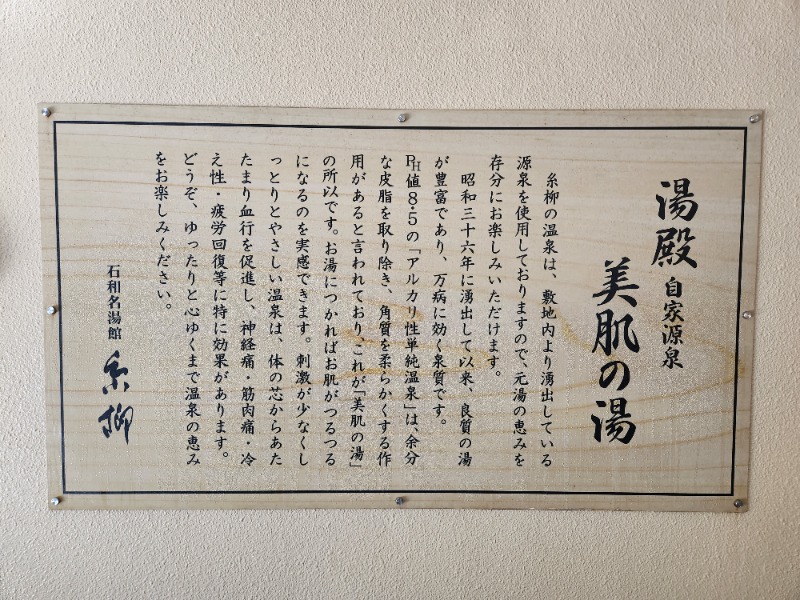 湯殿 自家源泉
美肌の湯
糸柳の温泉は、敷地内より湧出している
源泉を使用しておりますので、元湯の恵みを
存分にお楽しみいただけます。
昭和三十六年に湧出して以来、良質の湯
が豊富であり、万病に効く泉質です。
PH値8.5の「アルカリ性単純温泉」は、余分
な皮脂を取り除き、角質を柔らかくする作
用があると言われており、これが「美肌の湯」
の所以です。お湯につかればお肌がつるつる
になるのを実感できます。刺激が少なくし
っとりとやさしい温泉は、体の芯からあた
たまり血行を促進し、神経痛・筋肉痛・冷
え性・疲労回復等に特に効果があります。
どうぞ、ゆったりと心ゆくまで温泉の恵み
をお楽しみください。
石和名湯館 糸柳